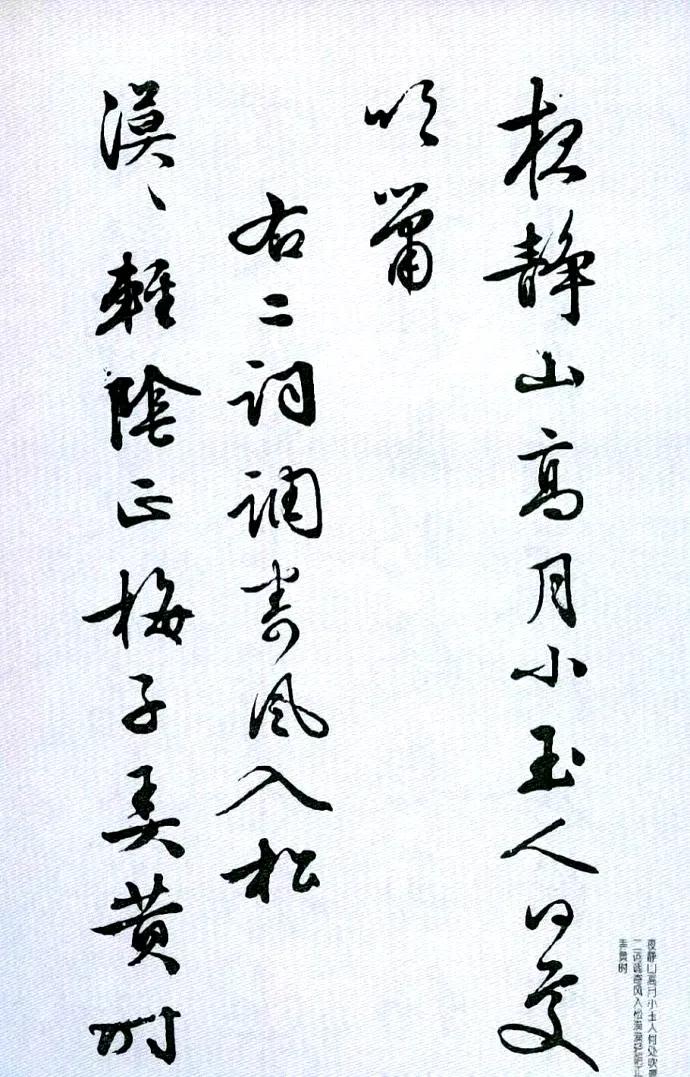 夜静山高月小玉人何处
吹箫
右二词调寄风入松
漠々轻阴正梅子弄黄时
夜静山高月小玉人何处吹箫
二词调寄风入松漠漠轻阴正
弄黄时